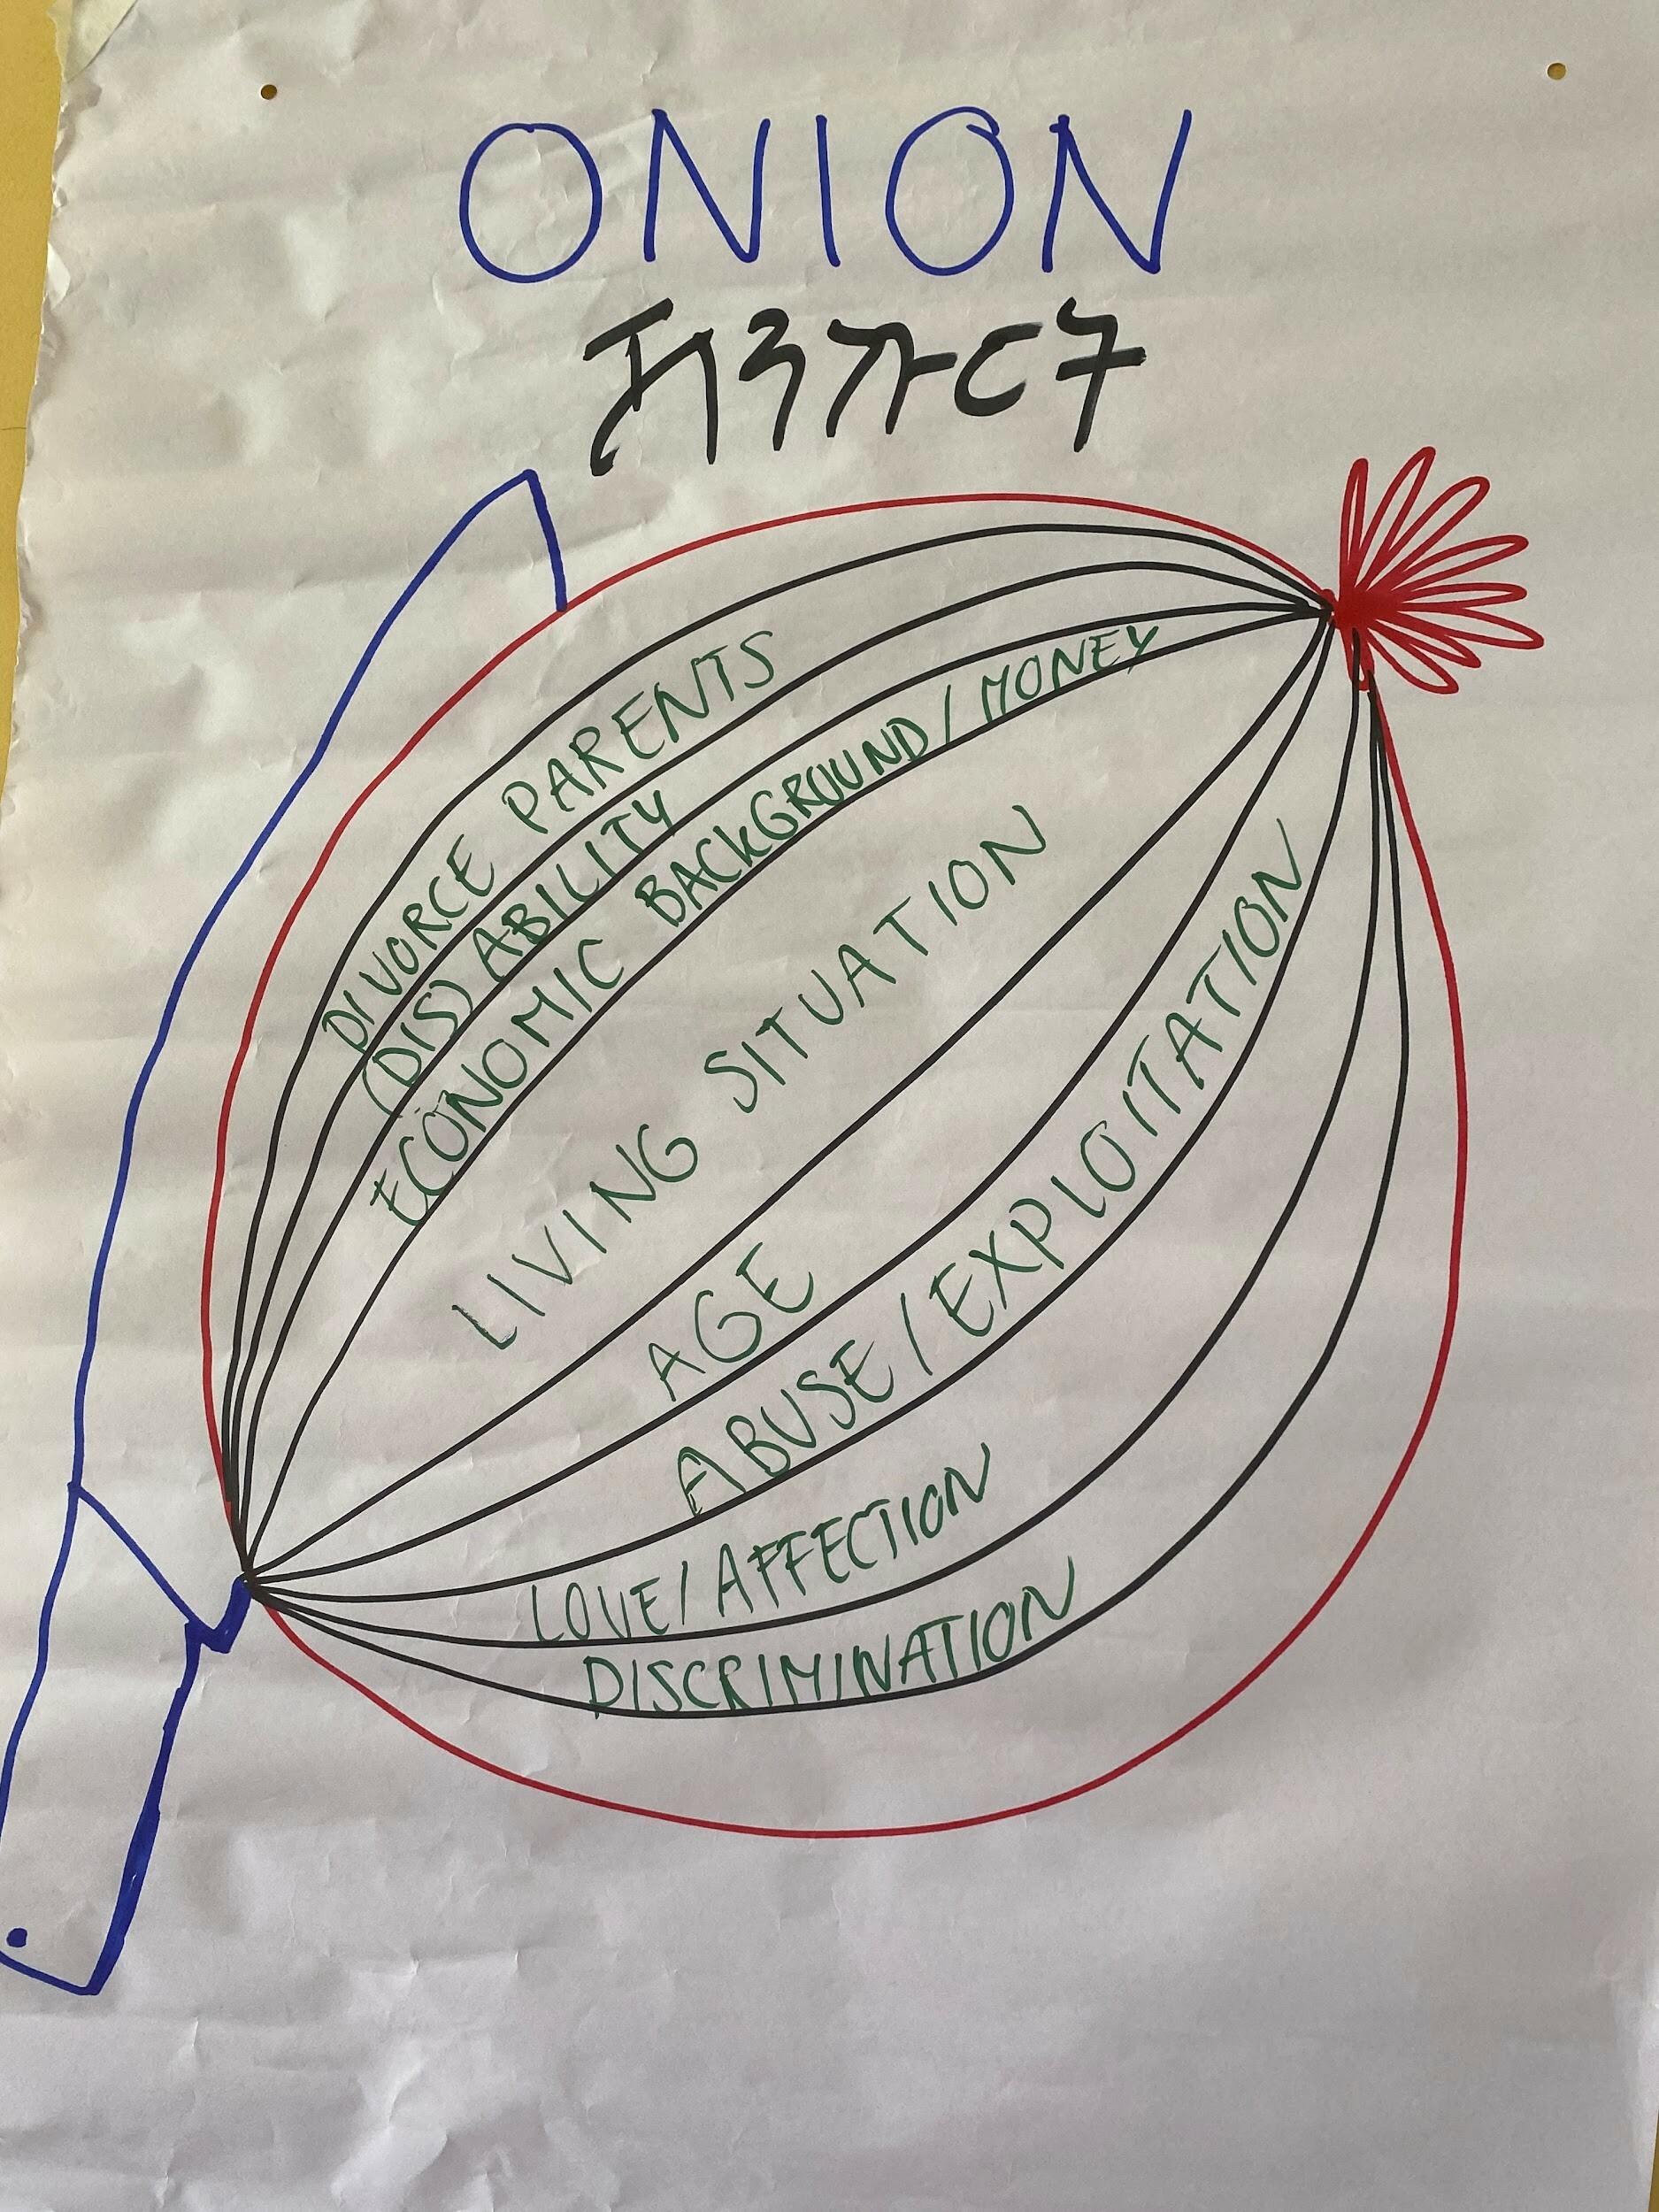 ONION
ሽንኩርት
DIVORCE PARENTS
(DIS) ABILITY
ECONOMIC BACKGROUND / MONEY
LIVING SITUATION
AGE
ABUSE / EXPLOITATION
LOVE / AFFECTION
DISCRIMINATION